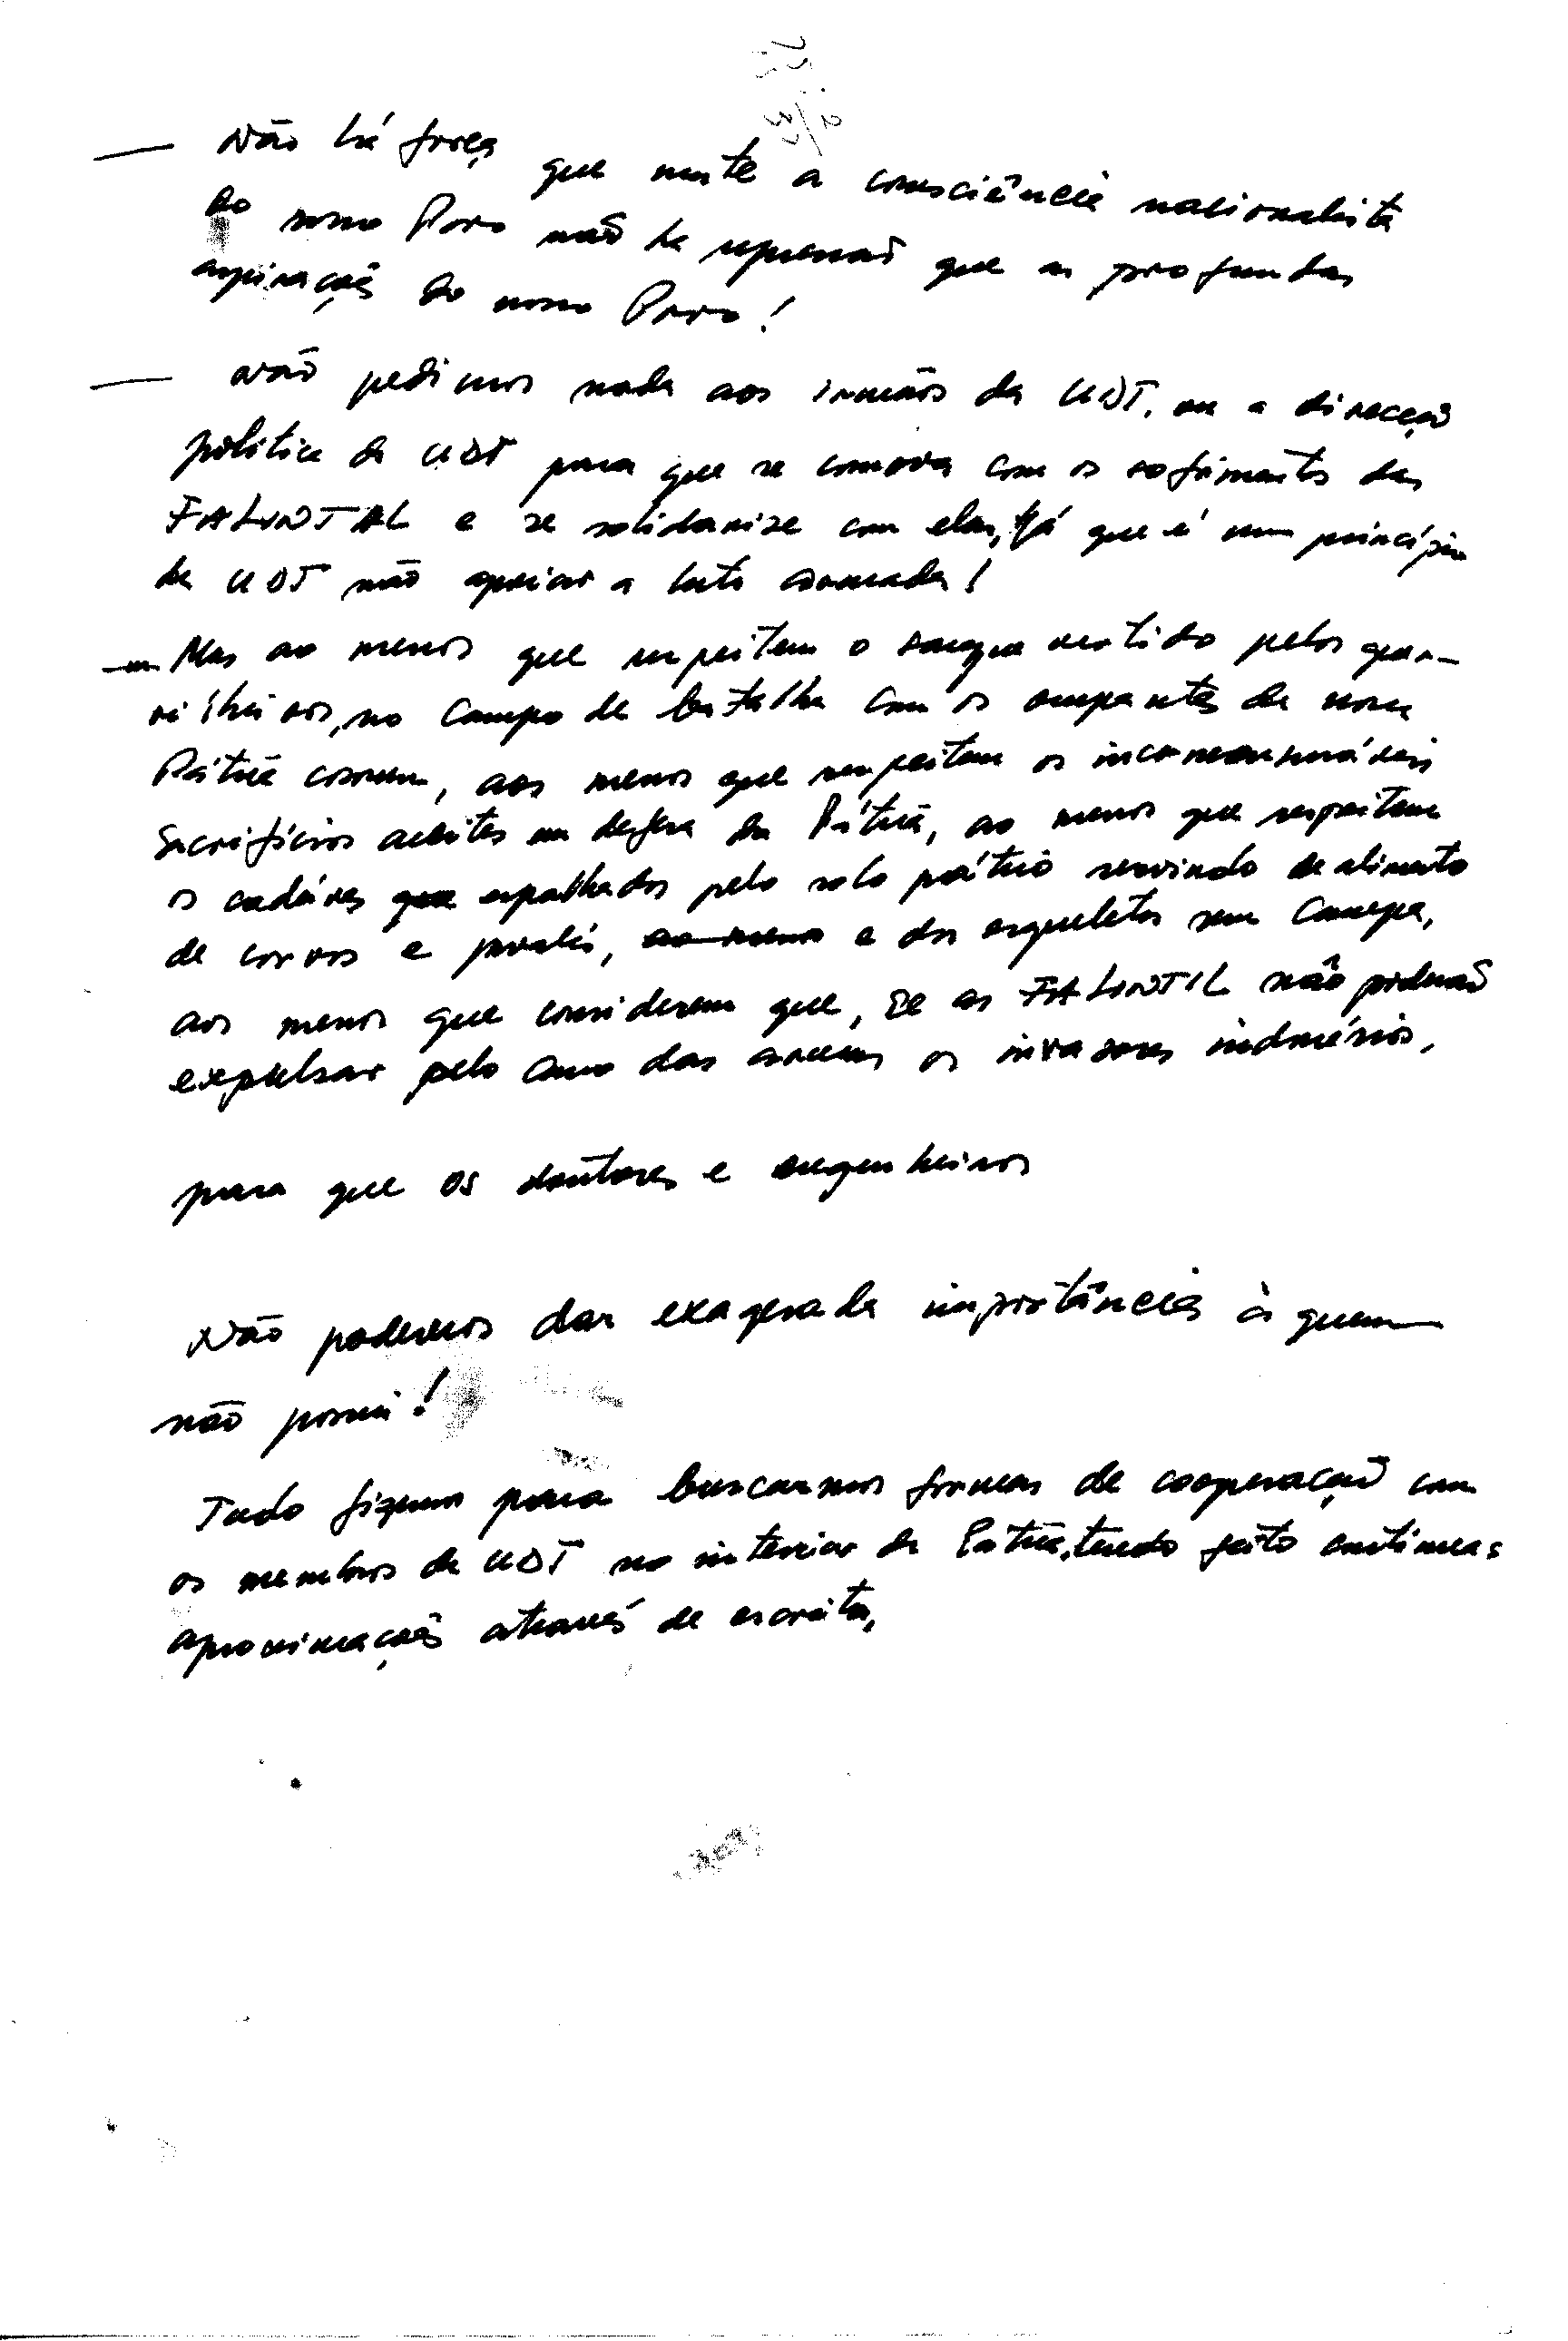 — Não há força que mate a consciência nacionalista
do nosso Povo não há repressão que as profundas
aspirações do nosso Povo!
— Não pedimos nada aos irmãos da UDT, ou a direcção
política da UDT para que se comova com os sofrimentos das
FALINTIL e se solidarize com elas, já que é um princípio
da UDT não apoiar a luta armada!
— Mas ao menos que respeitem o sangue vertido pelos guer-
rilheiros, no campo de batalha com os ocupantes da nossa
Pátria comum, aos menos que respeitem os incomensuráveis
sacrifícios aceites em defesa da Pátria, ao menos que respeitem
os cadáveres que espalhados pelo solo pátrio servindo de alimento
de corvos e javalis, ao menos e dos esqueletos sem campa,
aos menos que considerem que, se as FALINTIL não poderão
expulsar pelo cano das armas os invasores indonésios,
para que os doutores e engenheiros
Não podemos dar exagerada importância à quem
não possui!
Tudo fizemos para buscarmos formas de cooperação com
os membros da UDT no interior da Pátria, tendo feito contínuas
aproximações através de escritos,